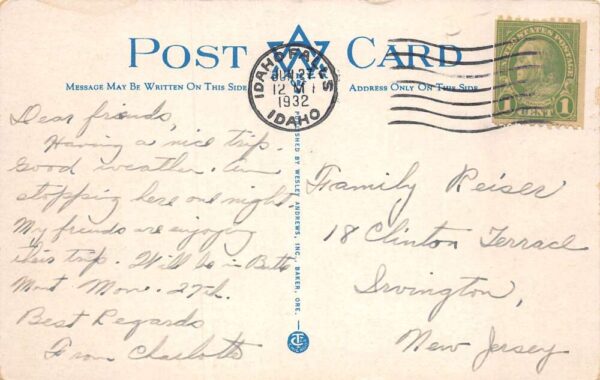 POST CARD
MESSAGE MAY BE WRITTEN ON THIS SIDE
ADDRESS ONLY ON THIS SIDE
IDAHO FALLS
JUN 27
12 M
1932
IDAHO
UNITED STATES POSTAGE
1 CENT 1
Dear friends,
Having a nice trip.
Good weather. Am
stopping here one night.
My friends are enjoying
this trip. Will be in Butte
Mont Mon. 27th.
Best Regards
From Charlotte
PUBLISHED BY WESLEY ANDREWS, INC., BAKER, ORE.
Family Reiser
18 Clinton Terrace
Irvington,
New Jersey